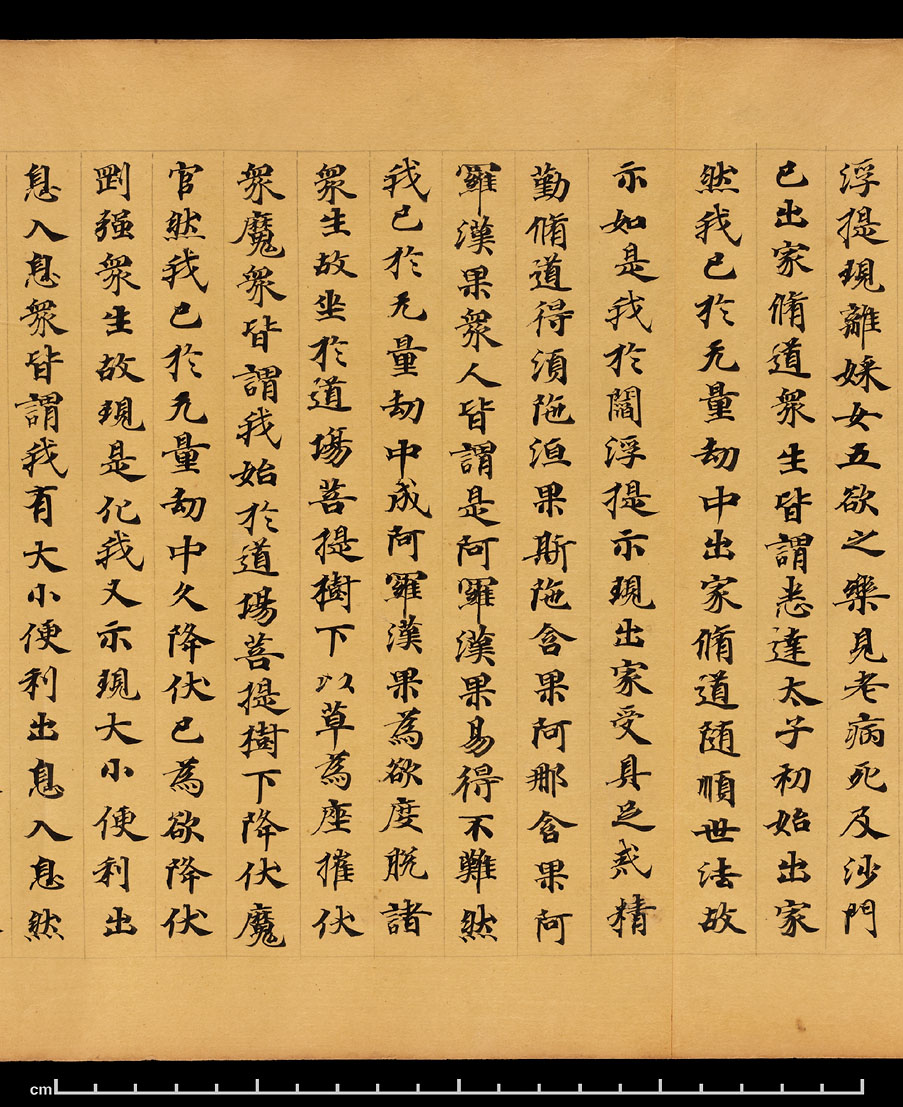 浮提現離婇女五欲之樂見老病死及沙門
已出家脩道衆生皆謂悉達太子初始出家
然我已於无量劫中出家脩道随順世法故
示如是我於閻浮提示現出家受具足戒精
勤脩道得須陁洹果斯陁含果阿那含果阿
羅漢果衆人皆謂是阿羅漢果易得不難然
我已於无量劫中成阿羅漢果為欲度脱諸
衆生故坐於道場菩提樹下以草為座摧伏
衆魔衆皆謂我始於道場菩提樹下降伏魔
官然我已於无量劫中久降伏已為欲降伏
剛强衆生故現是化我又示現大小便利出
息入息衆皆謂我有大小便利出息入息然
cm